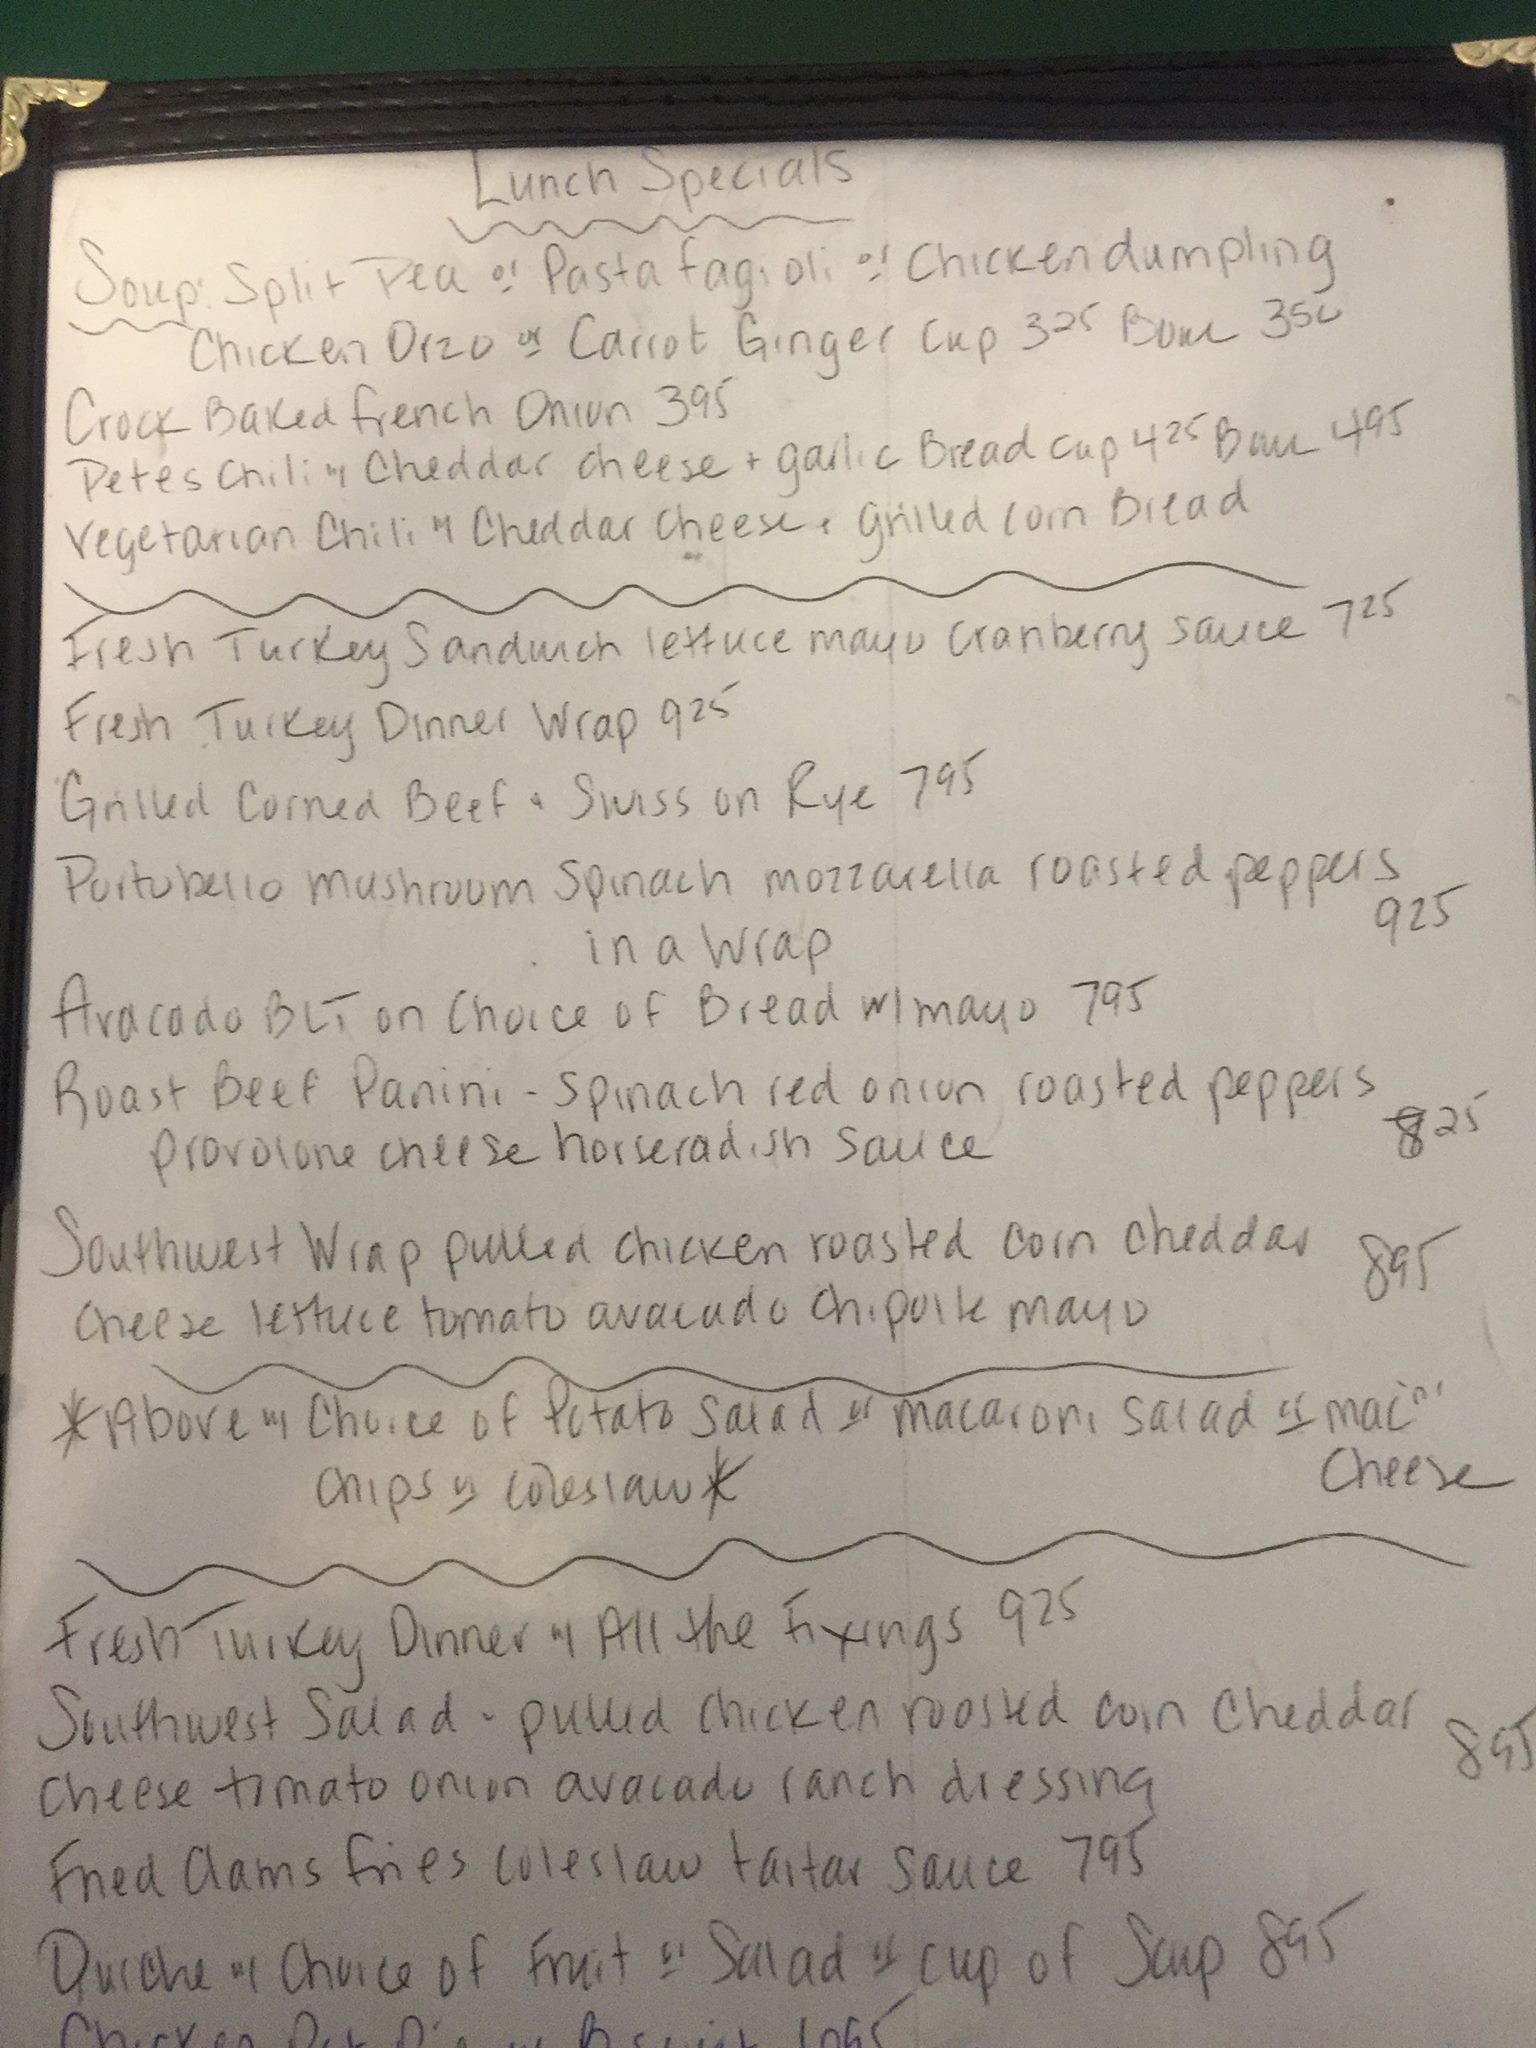 Lunch Specials
Soup: Split Pea or Pasta fagioli or Chicken dumpling
Chicken Orzo or Carrot Ginger Cup 325 Bowl 350
Crock Baked french Onion 395
Petes Chili w/ Cheddar cheese + garlic Bread cup 425 Bowl 495
Vegetarian Chili w/ Cheddar cheese + Grilled corn Bread
Fresh Turkey Sandwich lettuce mayo cranberry sauce 725
Fresh Turkey Dinner Wrap 925
Grilled Corned Beef + Swiss on Rye 795
Portobello mushroom Spinach mozzarella roasted peppers
925
in a Wrap
Avacado BLT on Choice of Bread w/ mayo 795
Roast Beef Panini - Spinach red onion roasted peppers
825
provolone cheese horseradish sauce
Southwest Wrap pulled chicken roasted corn cheddar
895
cheese lettuce tomato avacado chipotle mayo
*Above w/ Choice of Potato Salad or macaroni salad or mac n'
Cheese
chips or coleslaw*
Fresh Turkey Dinner w/ All the Fixings 925
Southwest Salad - pulled chicken roosted corn Cheddar
895
cheese tomato onion avacado ranch dressing
Fried Clams fries coleslaw tartar sauce 795
Quiche w/ Choice of Fruit or Salad or cup of Soup 895
Chicken Pot Pie w/ Biscuit 1095